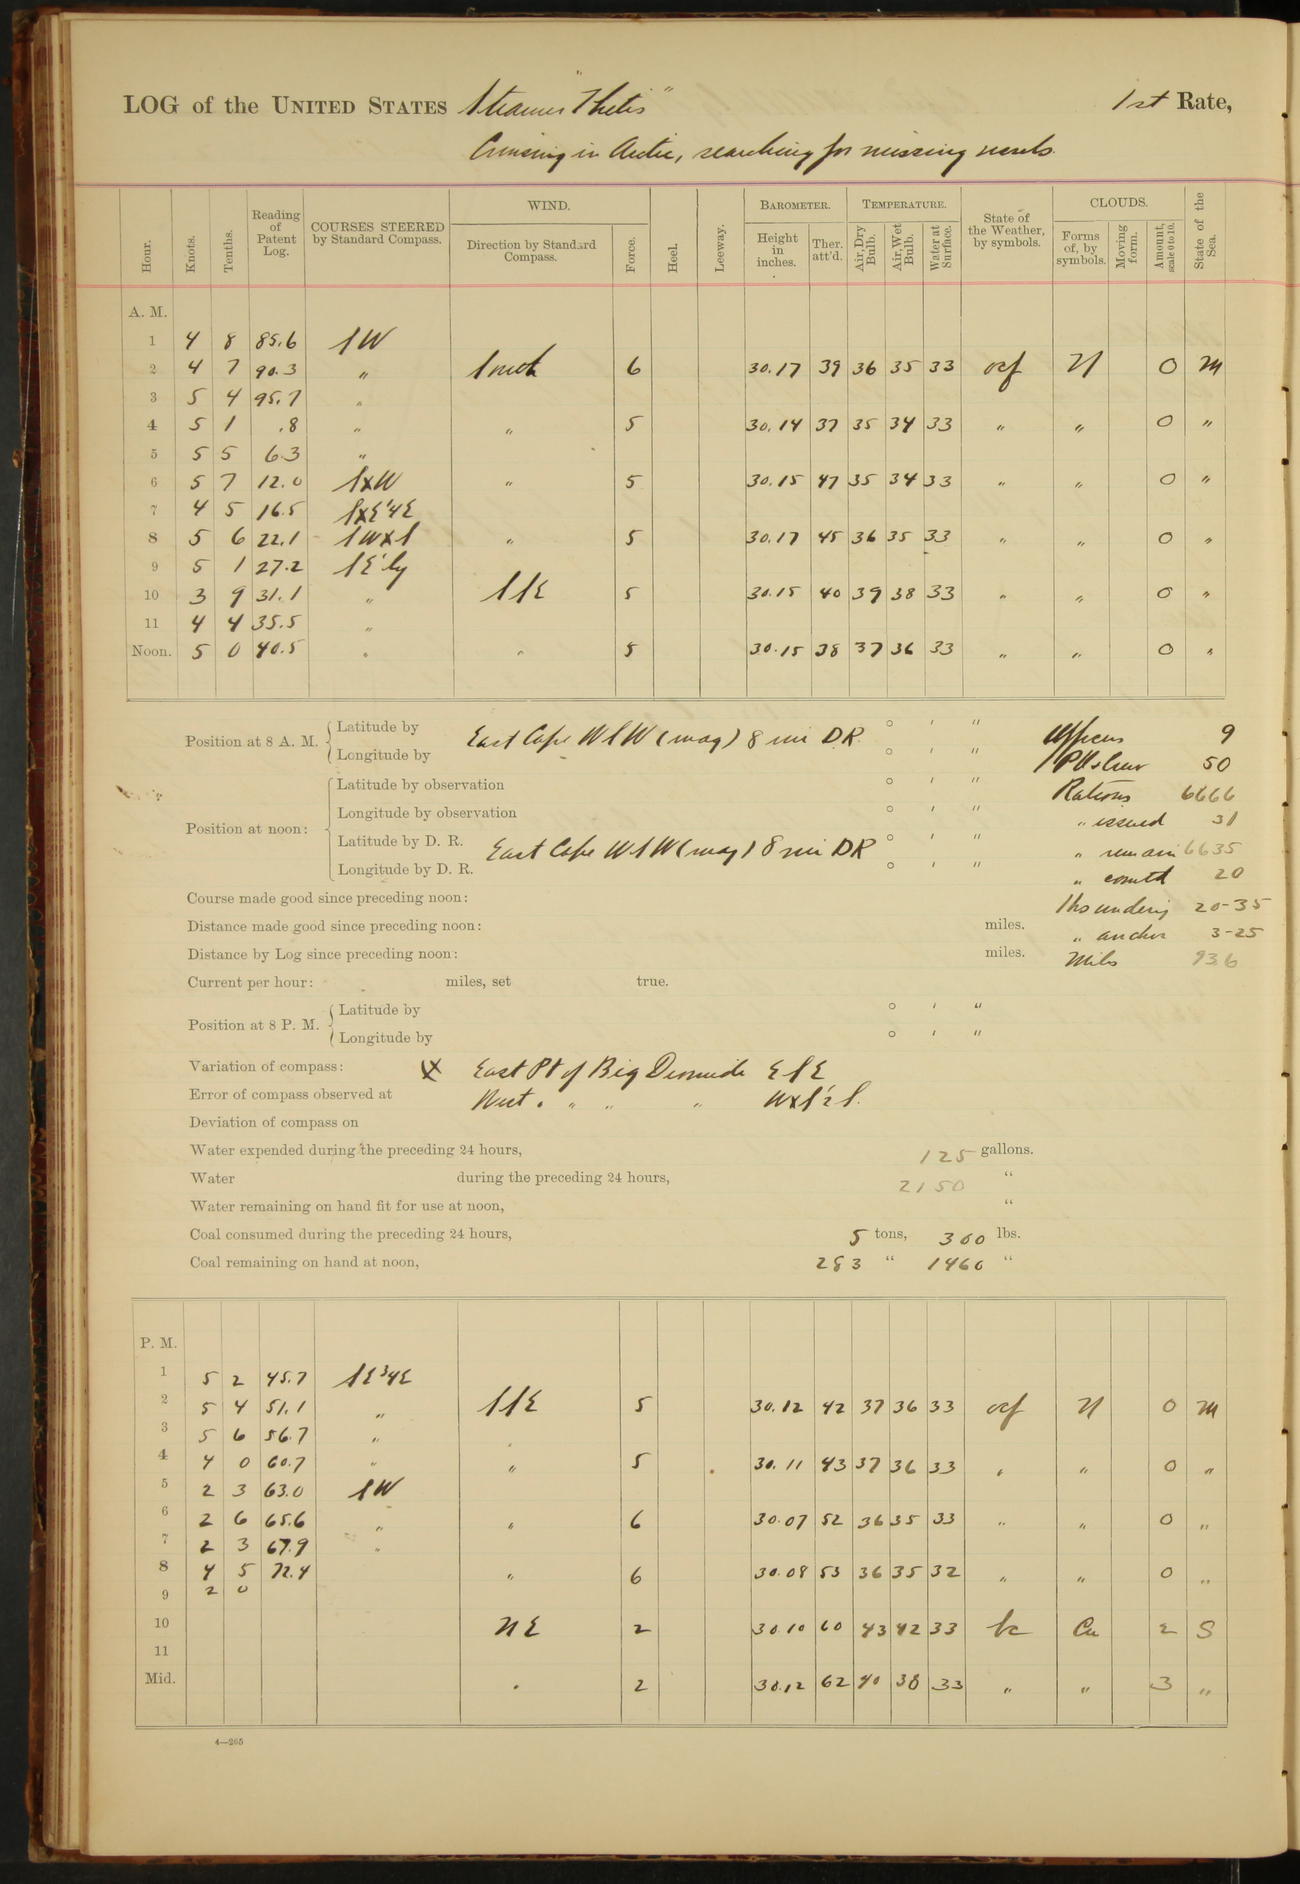 LOG of the UNITED STATES Steamer "Thetis" 1st Rate,
Cruising in Arctic, searching for missing vessels.
Hour. Knots. Tenths. Reading of Patent Log. COURSES STEERED by Standard Compass. WIND. Direction by Standard Compass. Force. Heel. Leeway. BAROMETER. Height in inches. Ther. att'd. TEMPERATURE. Air, Dry Bulb. Air, Wet Bulb. Water at Surface. State of the Weather, by symbols. CLOUDS. Forms of, by symbols. Moving form. Amount, scale 0 to 10. State of the Sea.
A. M.
1 4 8 85.6 SW
2 4 7 90.3 " South 6 30.17 39 36 35 33 ocf N 0 M
3 5 4 95.7 "
4 5 1 .8 " " 5 30.14 37 35 34 33 " " 0 "
5 5 5 6.3 "
6 5 7 12.0 SxW " 5 30.15 47 35 34 33 " " 0 "
7 4 5 16.5 SxE¼E
8 5 6 22.1 SWxS " 5 30.17 45 36 35 33 " " 0 "
9 5 1 27.2 SE'ly
10 3 9 31.1 " SSE 5 30.15 40 39 38 33 " " 0 "
11 4 4 35.5 "
Noon. 5 0 40.5 " " 5 30.15 38 37 36 33 " " 0 "
Position at 8 A. M. Latitude by ° ′ ″
Longitude by ° ′ ″
East Cape WSW (mag) 8 mi D.R.
Position at noon: Latitude by observation ° ′ ″
Longitude by observation ° ′ ″
Latitude by D. R. ° ′ ″
Longitude by D. R. ° ′ ″
East Cape WSW (mag) 8 mi DR
Officers 9
POs & crew 50
Rations 6666
" issued 31
" remain 6635
" com'td 20
Hrs underway 20-35
" anchor 3-25
Miles 93.6
Course made good since preceding noon:
Distance made good since preceding noon: miles.
Distance by Log since preceding noon: miles.
Current per hour: miles, set true.
Position at 8 P. M. Latitude by ° ′ ″
Longitude by ° ′ ″
Variation of compass: East Pt of Big Diomede ESE
Error of compass observed at West " " " " WxS½S.
Deviation of compass on
Water expended during the preceding 24 hours, 125 gallons.
Water during the preceding 24 hours, 2150 "
Water remaining on hand fit for use at noon, "
Coal consumed during the preceding 24 hours, 5 tons, 300 lbs.
Coal remaining on hand at noon, 283 " 1460 "
P. M.
1 5 2 45.7 SE¾E
2 5 4 51.1 " SSE 5 30.12 42 37 36 33 ocf N 0 M
3 5 6 56.7 "
4 4 0 60.7 " " 5 30.11 43 37 36 33 " " 0 "
5 2 3 63.0 SW
6 2 6 65.6 " " 6 30.07 52 36 35 33 " " 0 "
7 2 3 67.9 "
8 4 5 72.4 " 6 30.08 53 36 35 32 " " 0 "
9 2 0
10 NE 2 30.10 60 43 42 33 bc Cu 2 S
11
Mid. " 2 30.12 62 40 38 33 " " 3 "
4—265